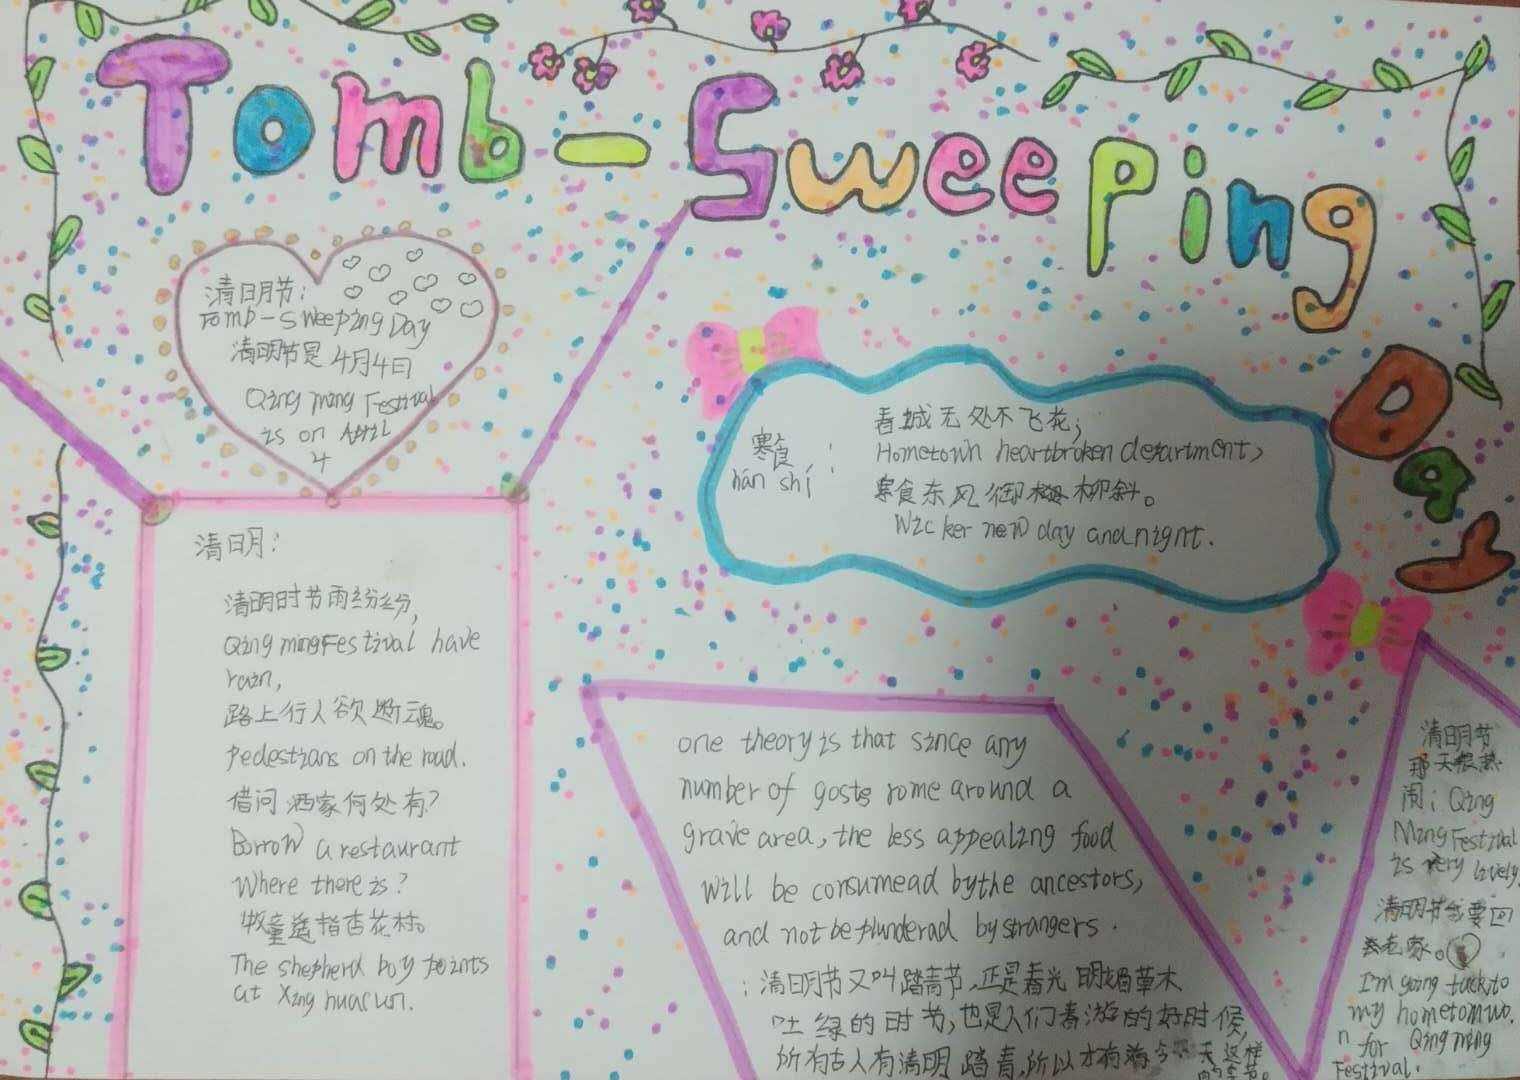 Tomb-Sweeping
Day
清明节:
Tomb-Sweeping Day
清明节是4月4日
Qing ming Festival
is on April
4
寒食:
hán shí
春城无处不飞花;
Hometown heartbroken department,
寒食东风御柳斜。
Wicker new day and night.
清明:
清明时节雨纷纷,
Qing ming Festival have
rain,
路上行人欲断魂。
Pedestrians on the road.
借问酒家何处有?
Borrow a restaurant
Where there is?
牧童遥指杏花村。
The shepherd boy points
at Xing hua cun.
one theory is that since any
number of gosts rome around a
grave area, the less appealing food
will be corsumead by the ancestors,
and not be plunderad by strangers.
:清明节又叫踏青节,正是春光明媚草木
吐绿的时节,也是人们春游的好时候,
所有古人有清明踏青,所以才有
天这样
清明节
那天很热
闹: Qing
Ming Festival
is very lively.
清明节我要回
去老家。
I'm going back to
my hometomwo.
n for Qing ming
Festival.